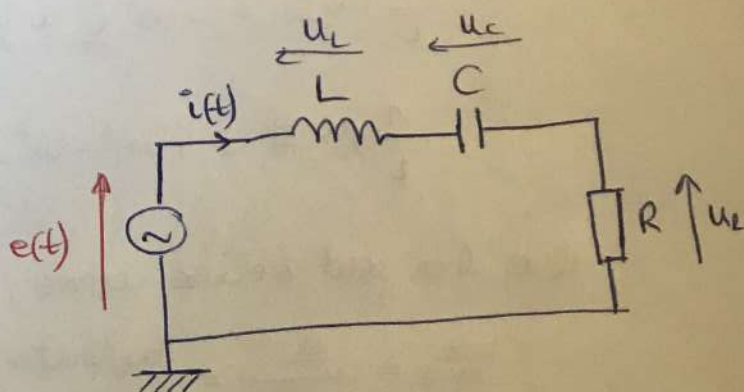 u_L u_C
L C
i(t)
e(t) ~ R u_R